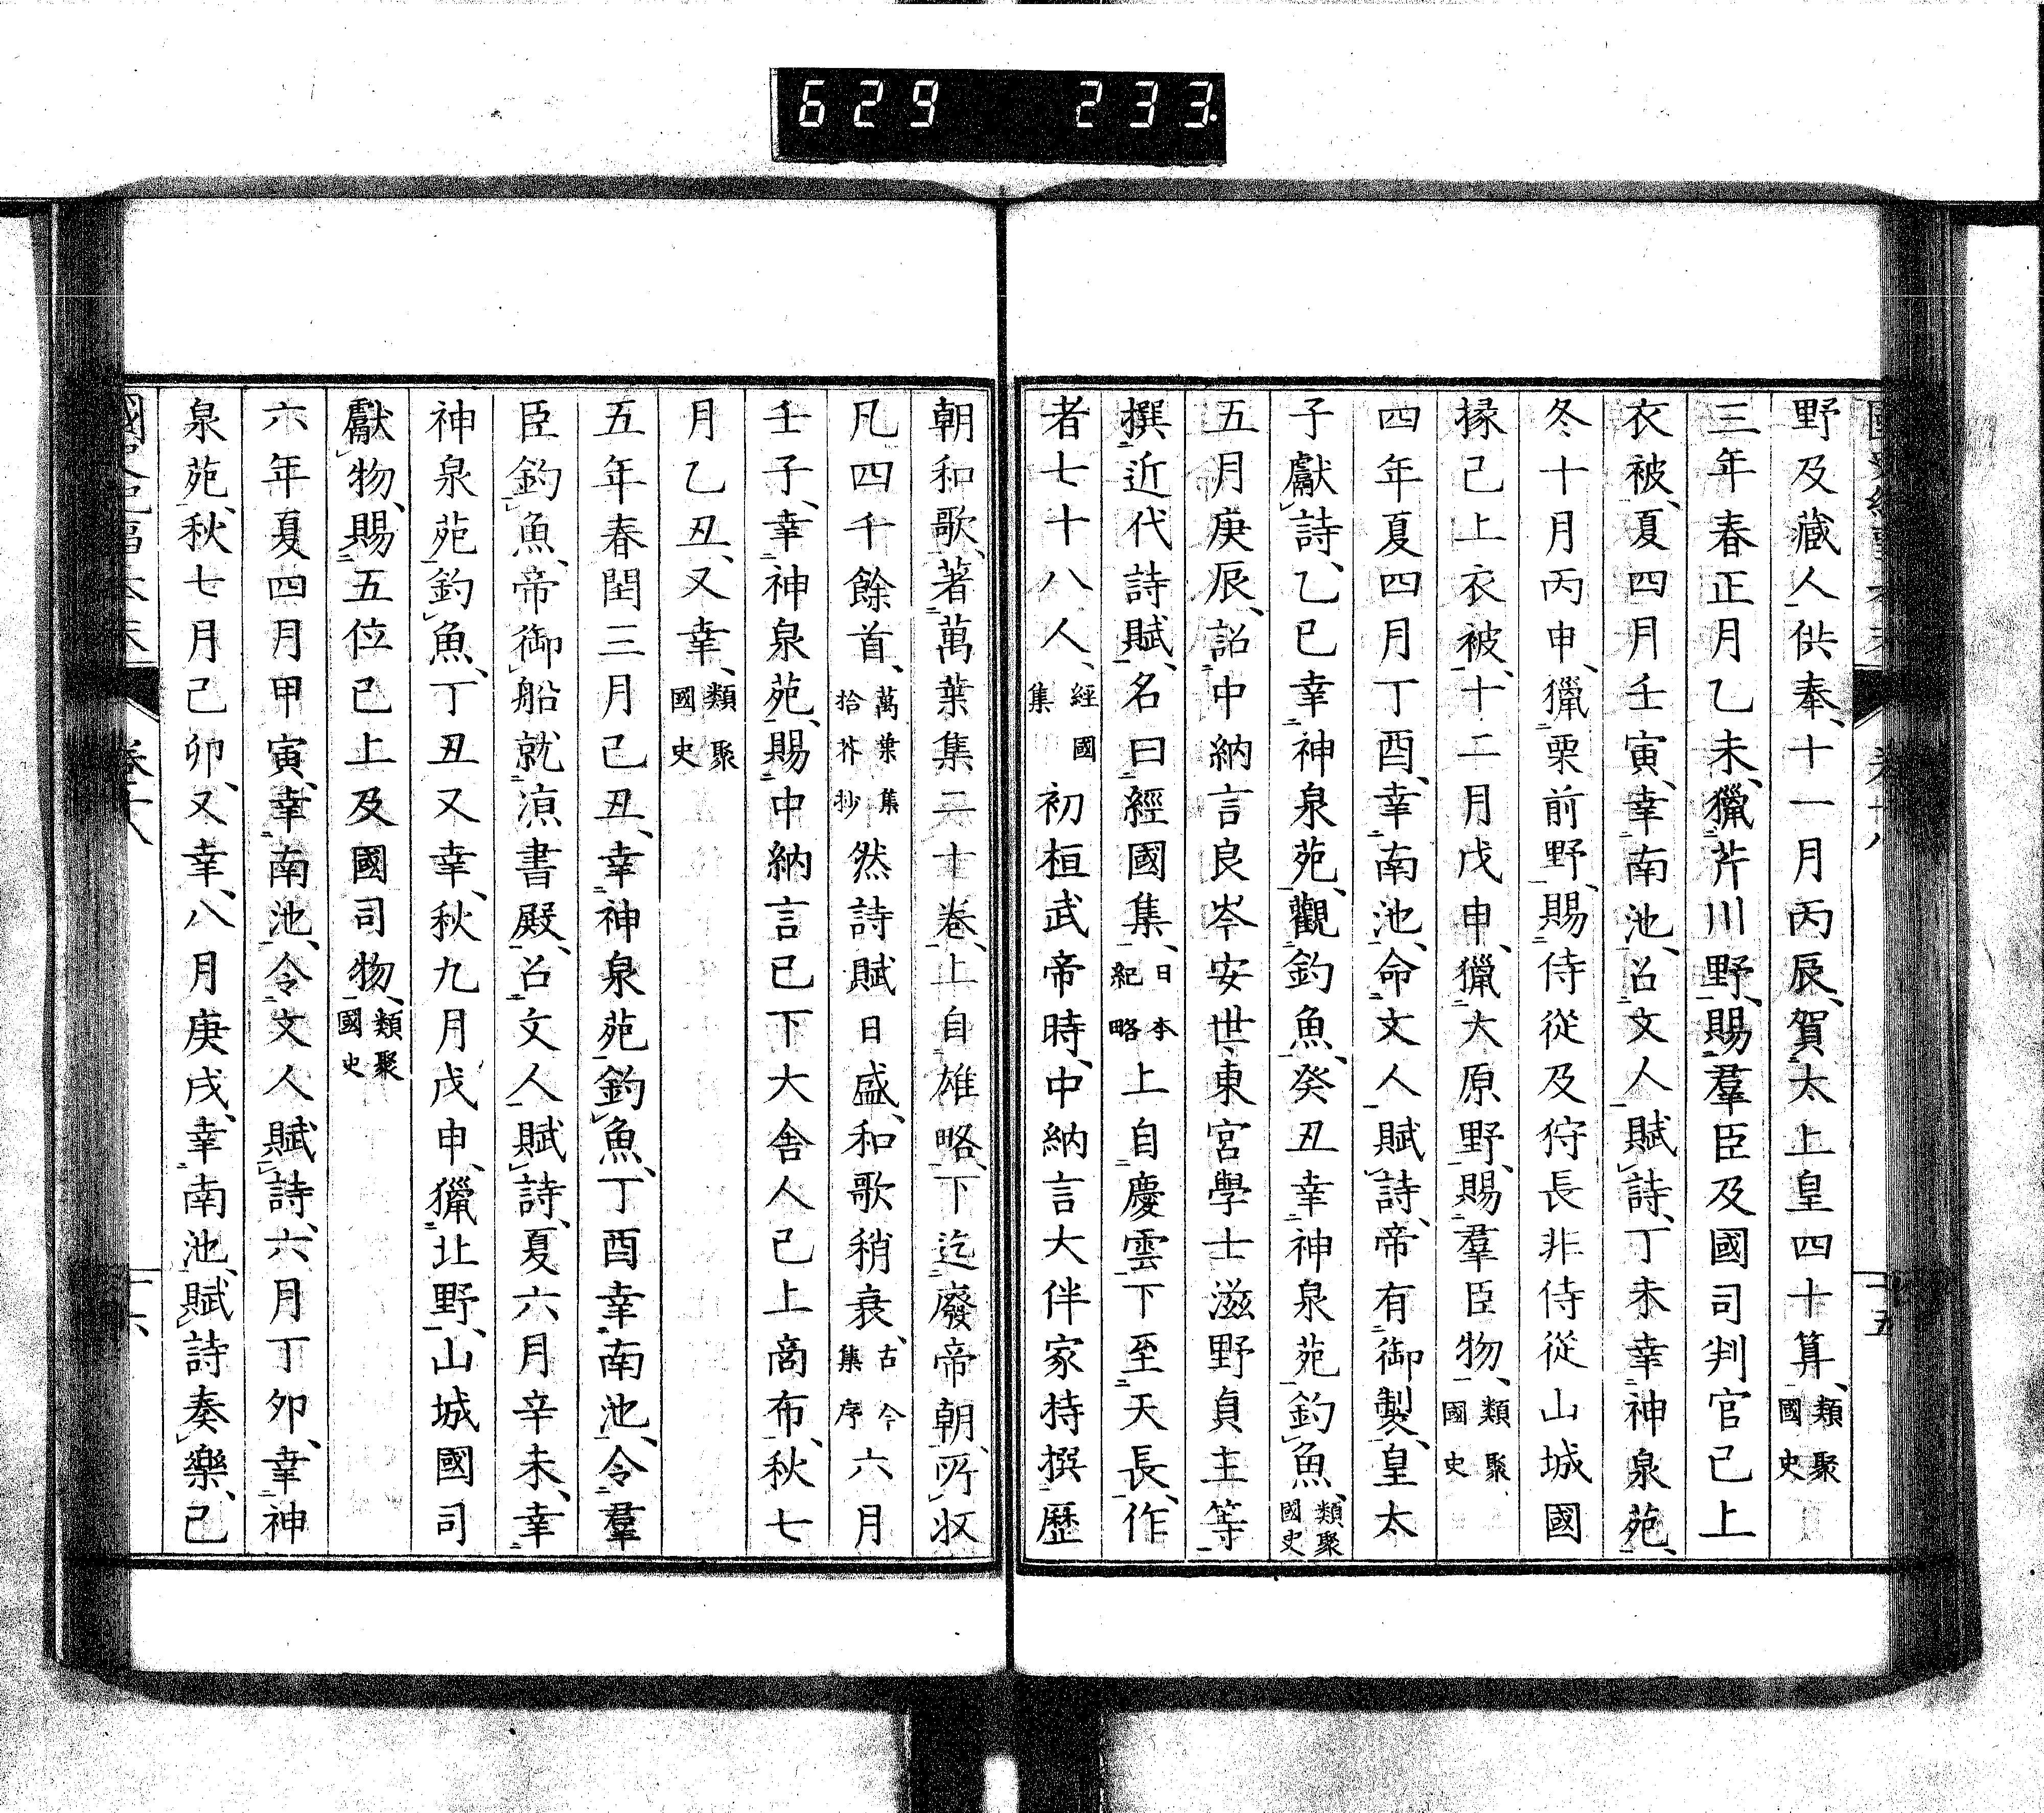 629 233
野及藏人供奉、十一月丙辰、賀太上皇四十算、類聚國史
三年春正月乙未、獵芹川野、賜羣臣及國司判官已上
衣被、夏四月壬寅、幸南池、召文人賦詩、丁未幸神泉苑、
冬十月丙申、獵栗前野、賜侍從及狩長非侍從山城國
掾已上衣被、十二月戊申、獵大原野、賜羣臣物、類聚國史
四年夏四月丁酉、幸南池、命文人賦詩、帝有御製、皇太
子獻詩、乙巳幸神泉苑、觀釣魚、癸丑幸神泉苑釣魚、類聚國史
五月庚辰、詔中納言良岑安世東宮學士滋野貞主等
撰近代詩賦、名曰經國集、日本紀略上自慶雲下至天長、作
者七十八人、經國集初桓武帝時、中納言大伴家持撰歷
朝和歌、著萬葉集二十卷、上自雄略、下迄廢帝朝、所收
凡四千餘首、萬葉集拾芥抄然詩賦日盛、和歌稍衰、古今集序六月
壬子、幸神泉苑、賜中納言已下大舍人已上商布、秋七
月乙丑、又幸、類聚國史
五年春閏三月己丑、幸神泉苑釣魚、丁酉幸南池、令羣
臣釣魚、帝御船就涼書殿、召文人賦詩、夏六月辛未、幸
神泉苑釣魚、丁丑又幸、秋九月戊申、獵北野、山城國司
獻物、賜五位已上及國司物、類聚國史
六年夏四月甲寅、幸南池、令文人賦詩、六月丁卯、幸神
泉苑、秋七月己卯、又幸、八月庚戌、幸南池、賦詩奏樂、己